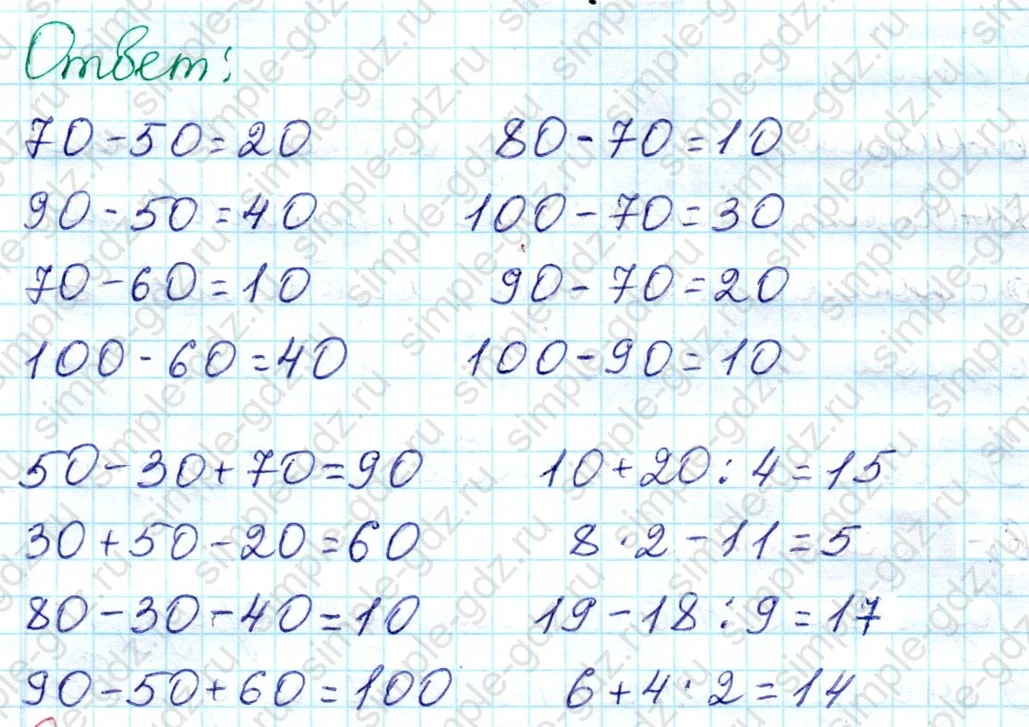 Ответ:
70-50=20 80-70=10
90-50=40 100-70=30
70-60=10 90-70=20
100-60=40 100-90=10
50-30+70=90 10+20:4=15
30+50-20=60 8·2-11=5
80-30-40=10 19-18:9=17
90-50+60=100 6+4·2=14
simple-gdz.ru